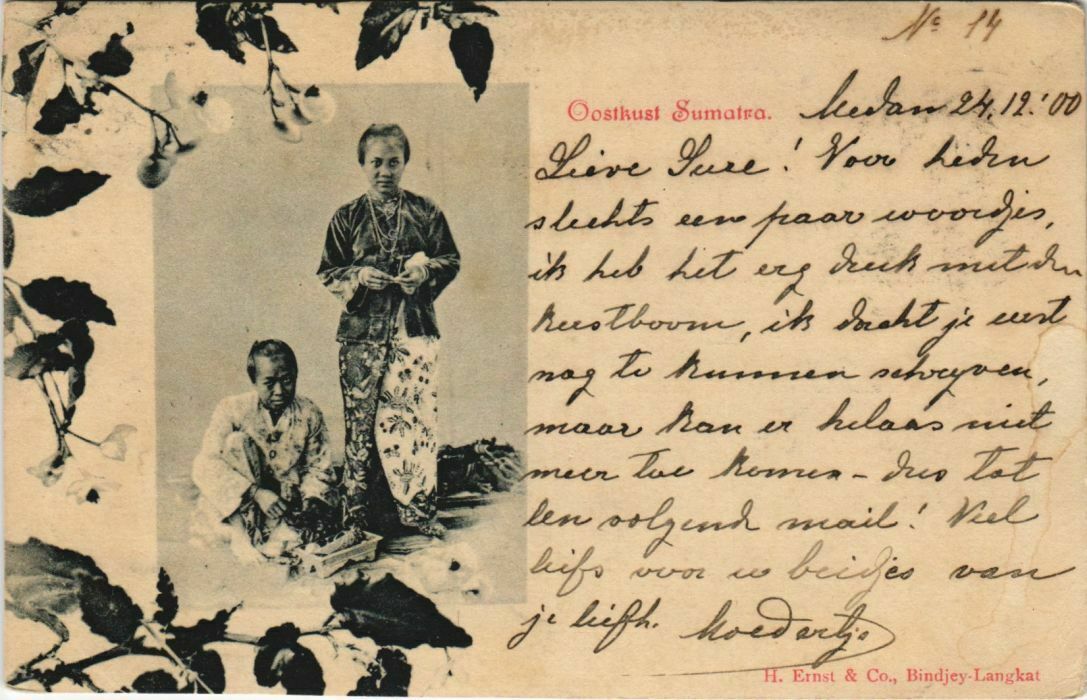 No 14
Oostkust Sumatra.
Medan 24.12.'00
Lieve Suze! Voor heden
slechts een paar woordjes,
ik heb het erg druk met den
kerstboom, ik dacht je eerst
nog te kunnen schryven,
maar kan er helaas niet
meer toe komen - dus tot
een volgende mail! Veel
liefs voor u beidjes van
je liefh. Moedertje
H. Ernst & Co., Bindjey-Langkat